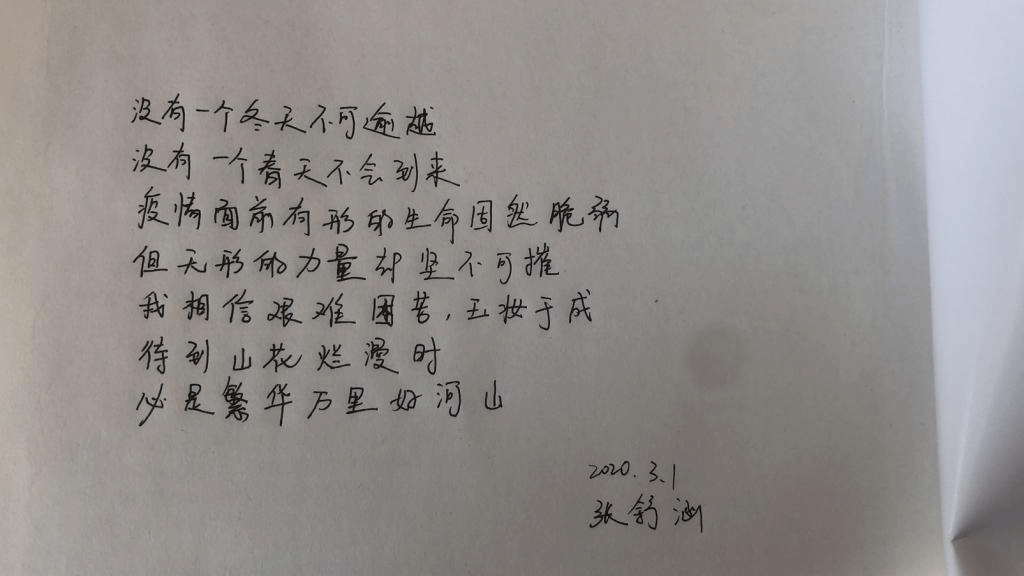 没有一个冬天不可逾越
没有一个春天不会到来
疫情面前有形的生命固然脆弱
但无形的力量却坚不可摧
我相信艰难困苦,玉妆于成
待到山花烂漫时
必是繁华万里好河山
2020.3.1
张舒涵